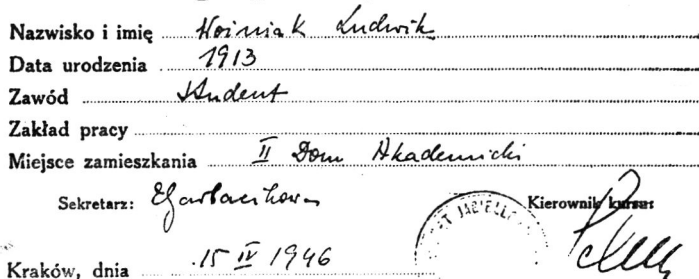 Nazwisko i imię Woźniak Ludwik
Data urodzenia 1913
Zawód student
Zakład pracy
Miejsce zamieszkania II Dom Akademicki
Sekretarz: Kierownik kursu:
ET JAGIELLO
Kraków, dnia 15 IV 1946